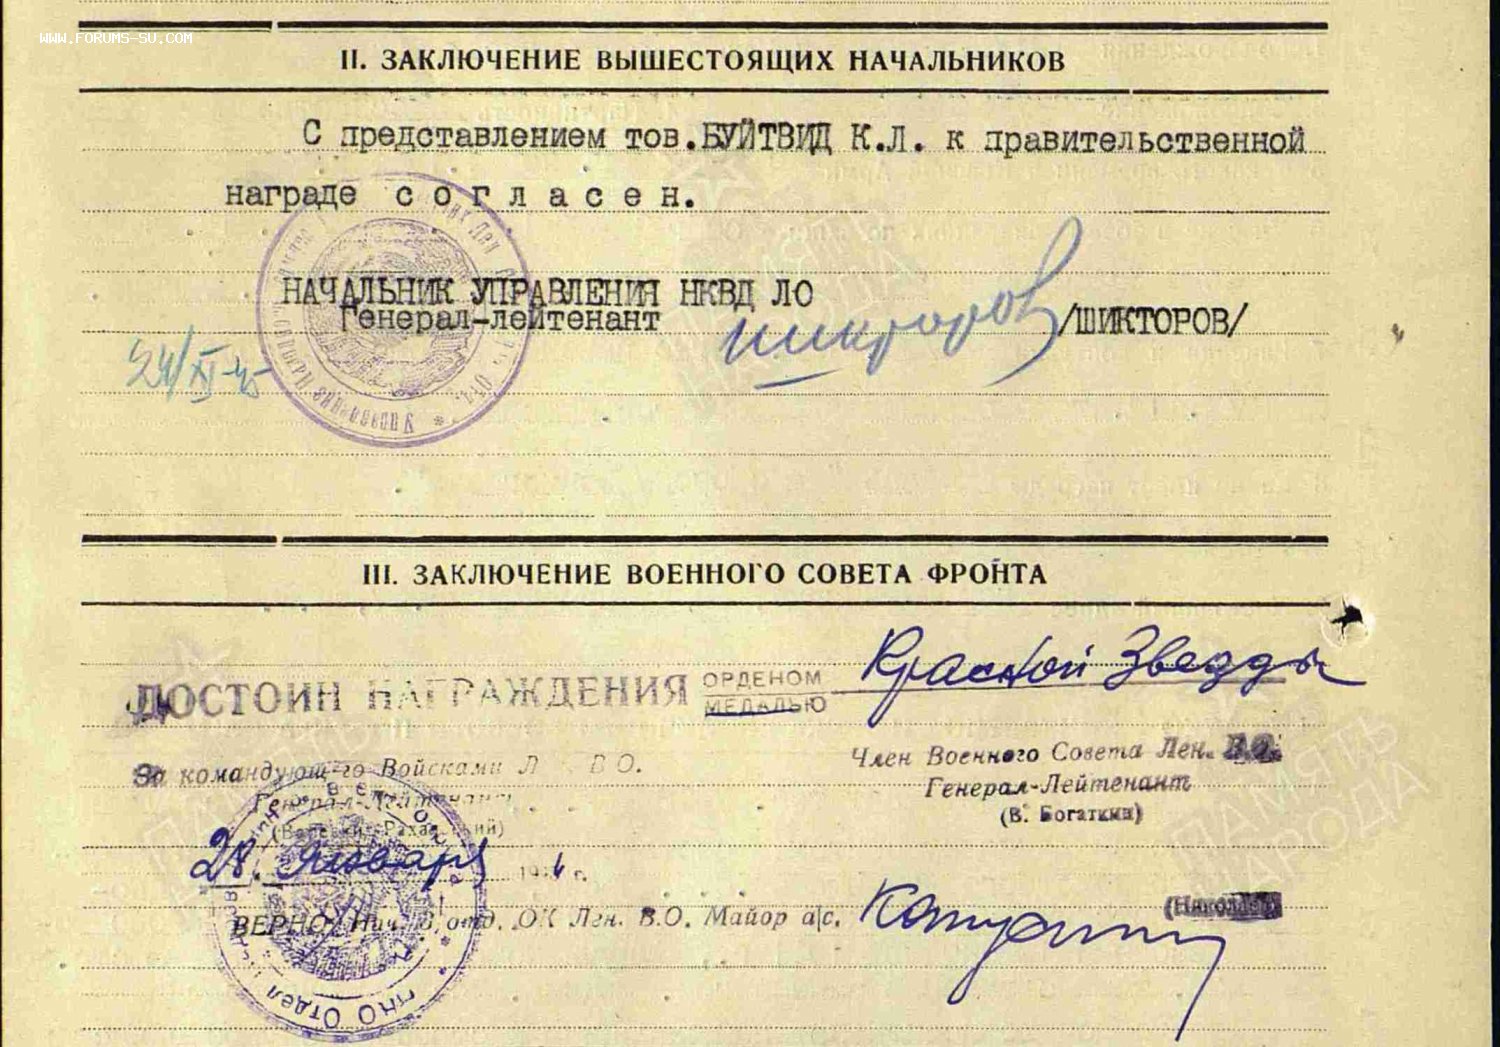 WWW.FORUMS-SU.COM
II. ЗАКЛЮЧЕНИЕ ВЫШЕСТОЯЩИХ НАЧАЛЬНИКОВ
С представлением тов.БУЙТВИД К.Л. к правительственной
награде с о г л а с е н.
НАЧАЛЬНИК УПРАВЛЕНИЯ НКВД ЛО
Генерал-лейтенант
Шикторов /ШИКТОРОВ/
III. ЗАКЛЮЧЕНИЕ ВОЕННОГО СОВЕТА ФРОНТА
ДОСТОИН НАГРАЖДЕНИЯ ОРДЕНОМ Красной Звезды
МЕДАЛЬЮ
За командующего Войсками Л В.О.
Генерал-Лейтенант
Член Военного Совета Лен. В.О.
Генерал-Лейтенант
(В. Богаткин)
28. Января 194 г.
ВЕРНО: Нач. отд. ОК Лен. В.О. Майор а/с.
Отдел
ПАМЯТЬ
НАРОДА